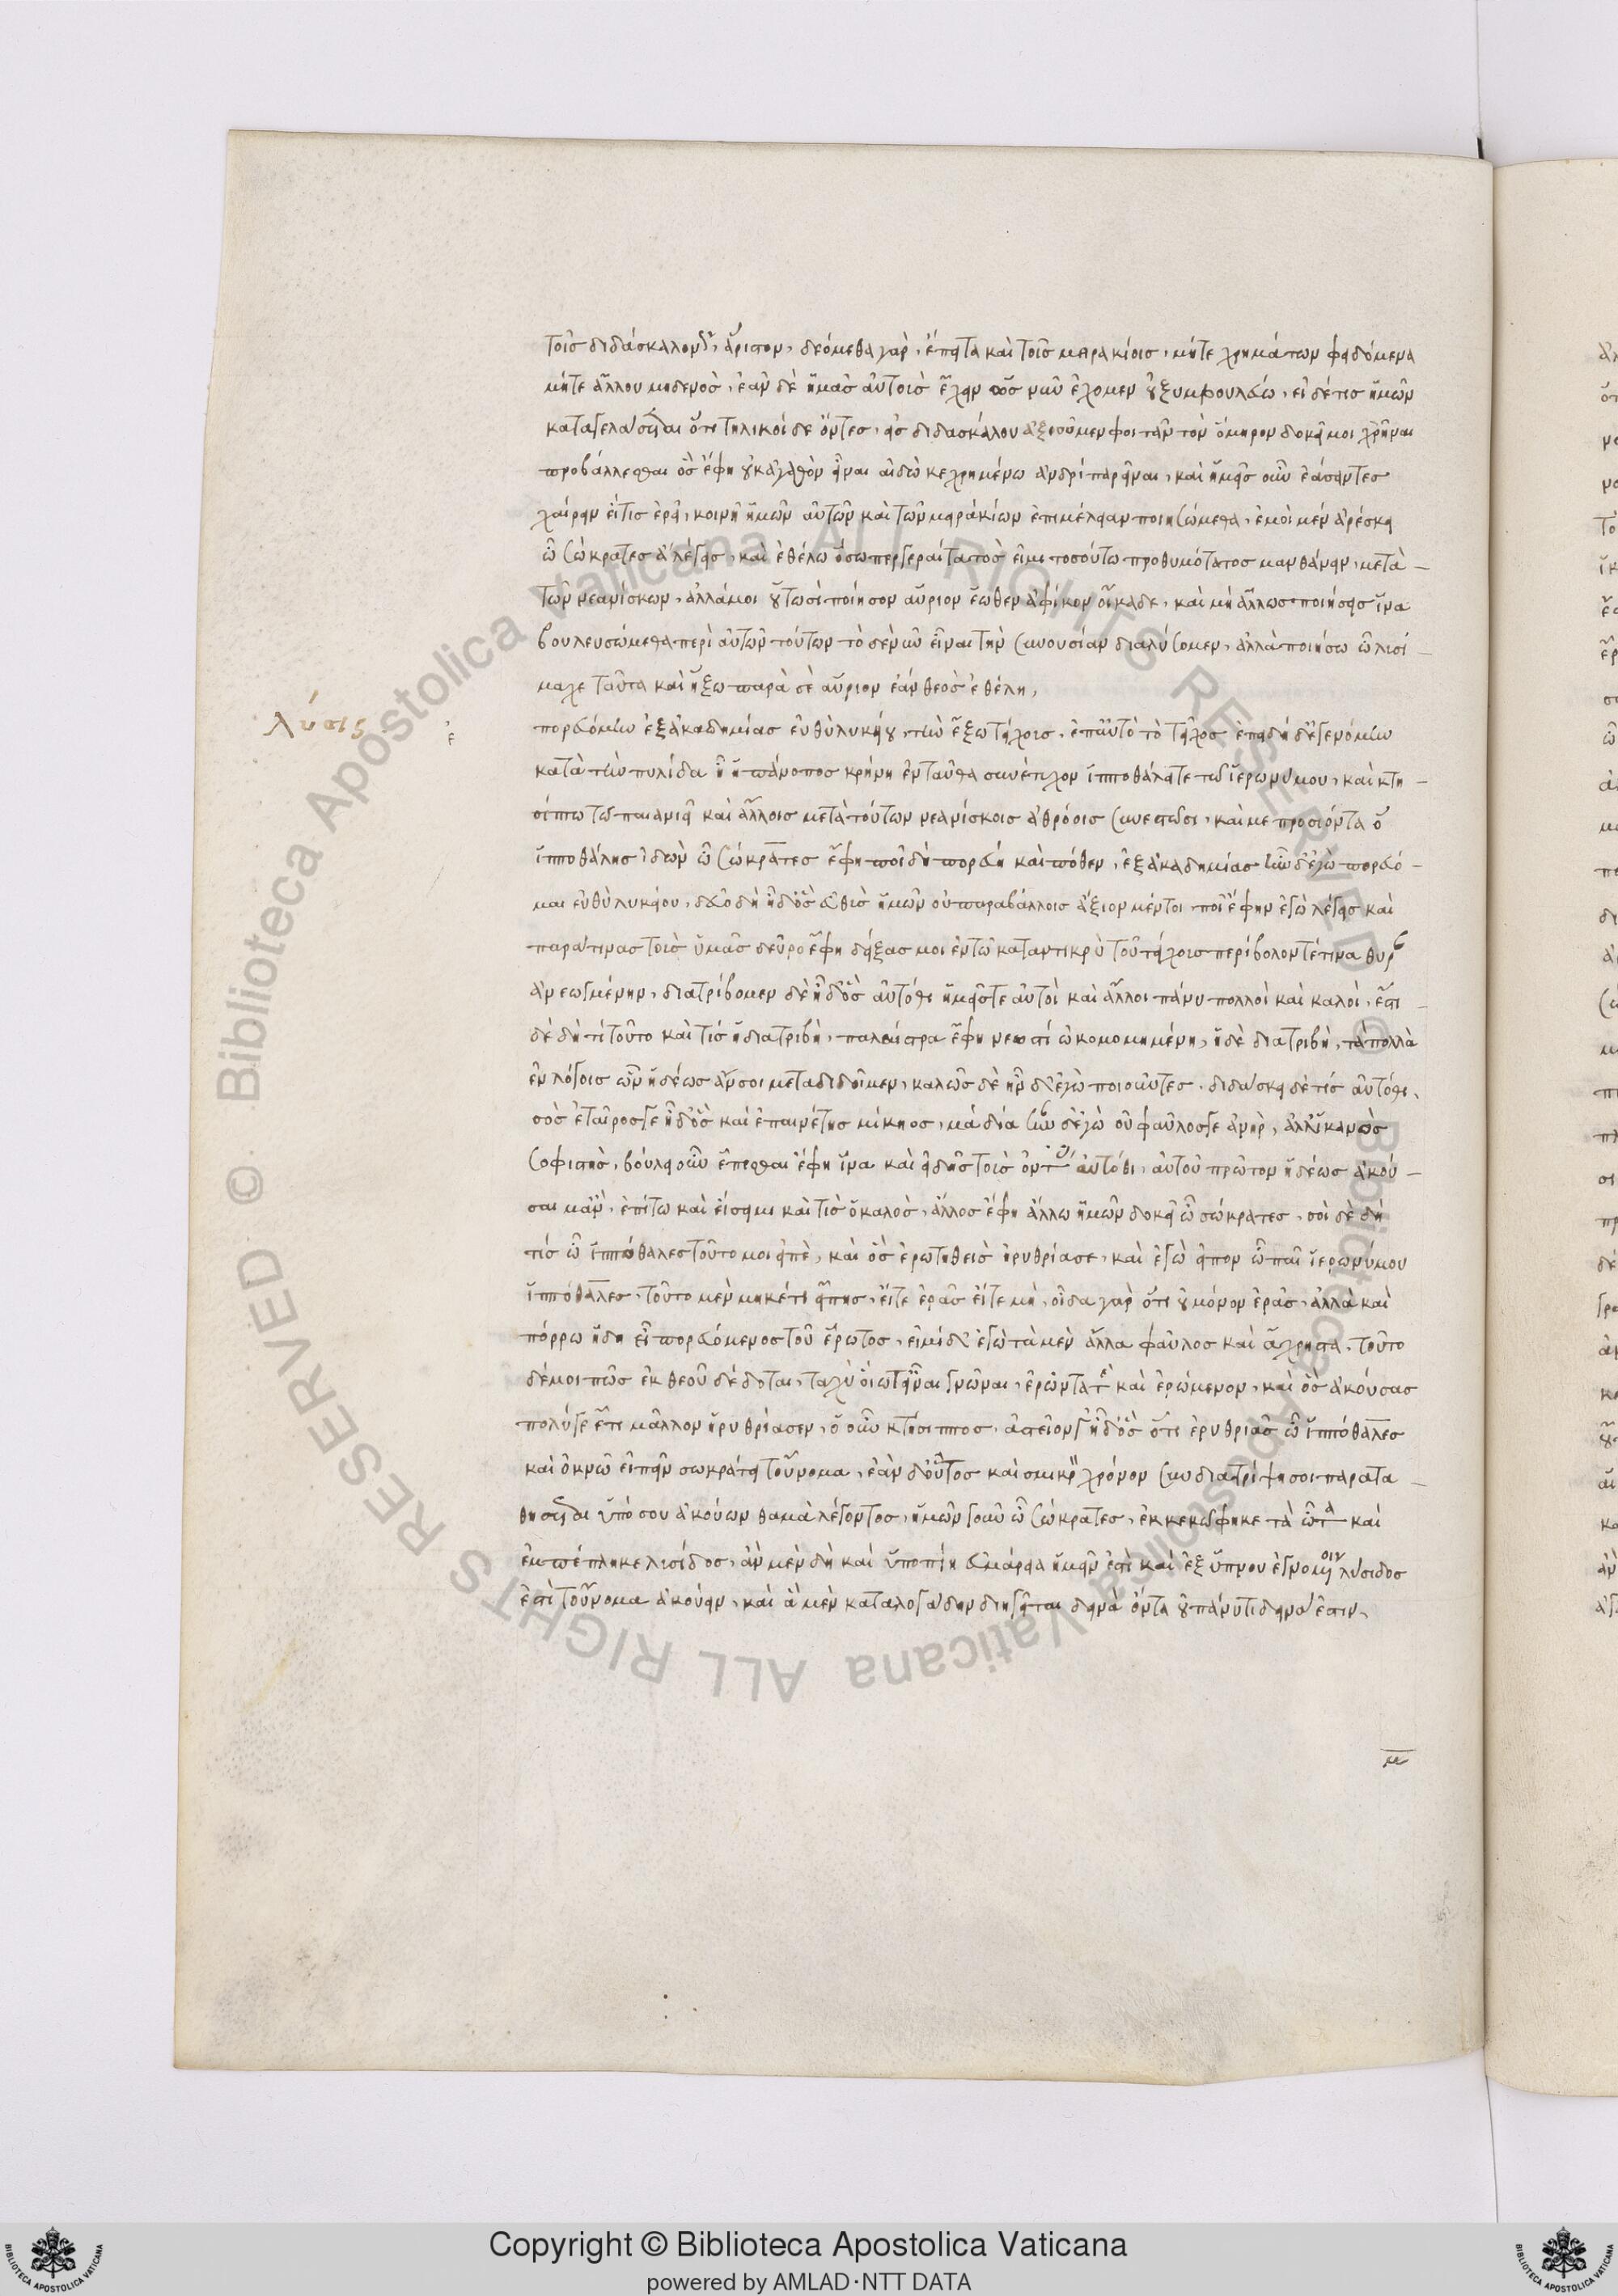 τοῖς διδάσκαλον ὡς ἄριστον, δεόμεθα γὰρ, ἔπειτα καὶ τοῖς μειρακίοις, μήτε χρημάτων φειδόμενα
μήτε ἄλλου μηδενὸς, ἐᾶν δὲ ἡμᾶς αὐτοὶς ἔχειν ὡς νῦν ἔχομεν οὐ ξυμβουλεύω, εἰ δέ τις ἡμῶν
καταγελάσεται ὅτι τηλικοίδε ὄντες, εἰς διδασκάλου ἀξιοῦμεν φοιτᾶν τὸν ὅμηρον δοκεῖ μοι χρῆναι
προβάλλεσθαι ὃς ἔφη οὐκ ἀγαθὸν εἶναι αἰδὼ κεχρημένω ἀνδρὶ παρεῖναι, καὶ ἡμεῖς οὖν ἐάσαντες
χαίρειν εἴ τις ἐρεῖ, κοινῆ ἡμῶν αὐτῶν καὶ τῶν μειρακίων ἐπιμέλειαν ποιησώμεθα, ἐμοὶ μὲν ἀρέσκει
ὦ σώκρατες ἃ λέγεις, καὶ ἐθέλω ὅσωπερ γεραίτατος εἰμι τοσούτω προθυμότατος μανθάνειν, μετὰ –
τῶν νεανίσκων, ἀλλά μοι οὑτωσὶ ποίησον αὔριον ἕωθεν ἀφίκου οἴκαδε, καὶ μὴ ἄλλως ποιήσεις ἵνα
βουλευσώμεθα περὶ αὐτῶν τούτων τὸ δε νῦν εἶναι τὴν συνουσίαν διαλύσομεν, ἀλλὰ ποιήσω ὦ λυσί –
μαχε ταῦτα καὶ ἥξω παρὰ σὲ αὔριον ἐὰν θεὸς ἐθέλη,
λύσις
ε
πορευόμην ἐξ ἀκαδημίας εὐθὺ λυκείου, τὴν ἔξω τείχους, ἐπ' αὐτὸ τὸ τεῖχος ἐπειδὴ δ' ἐγενόμην
κατὰ τὴν πυλίδα ἧ ἡ πάνοπος κρήνη ἐνταῦθα συνέτυχον ἱπποθάλει τε τῶ ἱερωνύμου, καὶ κτη –
σίππω τῶ παιανιεῖ καὶ ἄλλοις μετὰ τούτων νεανίσκοις ἀθρόοις συνεστῶσι, καί με προσιόντα ὁ
ἱπποθάλης ἰδὼν ὦ σώκρατες ἔφη ποῖ δὴ πορεύη καὶ πόθεν, ἐξ ἀκαδημίας ἦν δ' ἐγὼ πορεύο –
μαι εὐθὺ λυκείου, δεῦρο δὴ ἦ δ' ὃς εὐθὺς ἡμῶν οὐ παραβάλλοις ἄξιον μέντοι, ποῖ ἔφην ἐγὼ λέγεις καὶ
παρὰ τίνας τοὺς ὑμᾶς δεῦρο ἔφη δείξας μοι ἐν τῶ καταντικρὺ τοῦ τείχους περίβολόν τέ τινα θύραν
ἀνεωγμένην, διατρίβομεν δὲ ἦ δ' ὃς αὐτόθι ἡμεῖς τε αὐτοὶ καὶ ἄλλοι πάνυ πολλοὶ καὶ καλοί, ἔστι –
δὲ δὴ τί τοῦτο καὶ τίς ἡ διατριβή, παλαίστρα ἔφη νεωστὶ ὠκοδομημένη, ἡ δὲ διατριβὴ, τὰ πολλὰ
ἐν λόγοις ὧν ἡδέως ἄν σοι μεταδιδοῖμεν, καλῶς δὲ ἦν δ' ἐγὼ ποιοῦντες, διδάσκει δὲ τίς αὐτόθι,
σὸς ἑταῖρός γε ἦ δ' ὃς καὶ ἐπαινέτης μίκκος, μὰ δία ἦν δ' ἐγὼ οὐ φαῦλός γε ἁνὴρ, ἀλλ' ἱκανὸς
σοφιστής, βούλει οὖν ἕπεσθαι ἔφη ἵνα καὶ εἰδῆς τοὺς ὄντας αὐτόθι, αὐτοῦ πρῶτον ἡδέως ἀκού –
σαιμ' ἂν, ἐπί τω καὶ εἴσειμι καὶ τίς ὁ καλὸς, ἄλλος ἔφη ἄλλω ἡμῶν δοκεῖ ὦ σώκρατες, σοὶ δὲ δὴ
τίς ὦ ἱππόθαλες τοῦτό μοι εἰπὲ, καὶ ὃς ἐρωτηθεὶς ἠρυθρίασε, καὶ ἐγὼ εἶπον ὦ παῖ ἱερωνύμου
ἱππόθαλες, τοῦτο μὲν μηκέτι εἴπης, εἴτε ἐρᾶς εἴτε μὴ, οἶδα γὰρ ὅτι οὐ μόνον ἐρᾶς, ἀλλὰ καὶ
πόρρω ἤδη εἶ πορευόμενος τοῦ ἔρωτος, εἰμὶ δ' ἐγὼ τὰ μὲν ἄλλα φαῦλος καὶ ἄχρηστα, τοῦτο
δέ μοι πῶς ἐκ θεοῦ δέδοται, ταχὺ οἵωτ' εἶναι γνῶναι, ἐρῶντά τε καὶ ἐρώμενον, καὶ ὃς ἀκούσας
πολύ γε ἔτι μᾶλλον ἠρυθρίασεν, ὁ οὖν κτήσιππος, ἀστεῖόν γ' ἦ δ' ὃς ὅτι ἐρυθριᾶς ὦ ἱππόθαλες
καὶ ὀκνῶ εἰπεῖν σωκράτει τοὔνομα, ἐὰν δ' οὗτος καὶ σμικρὸν χρόνον συνδιατρίψη σοι παρατα –
θήσεται ὑπό σου ἀκούων θαμὰ λέγοντος, ἡμῶν γοῦν ὦ σώκρατες, ἐκκεκώφηκε τὰ ὦτα καὶ
ἐμπέπληκε λισίδος, ἂν μὲν δὴ καὶ ὑποπίη εὐμάρεια ἡμεῖν ἐστὶ καὶ ἐξ ὕπνου ἐγρομένοις λύσιδος
ἐστὶ τοὔνομα ἀκούειν, καὶ ἃ μὲν καταλογάδην διηγεῖται δεινὰ ὄντα οὐ πάνυ τι δεινά ἐστιν,
Copyright © Biblioteca Apostolica Vaticana
powered by AMLAD·NTT DATA